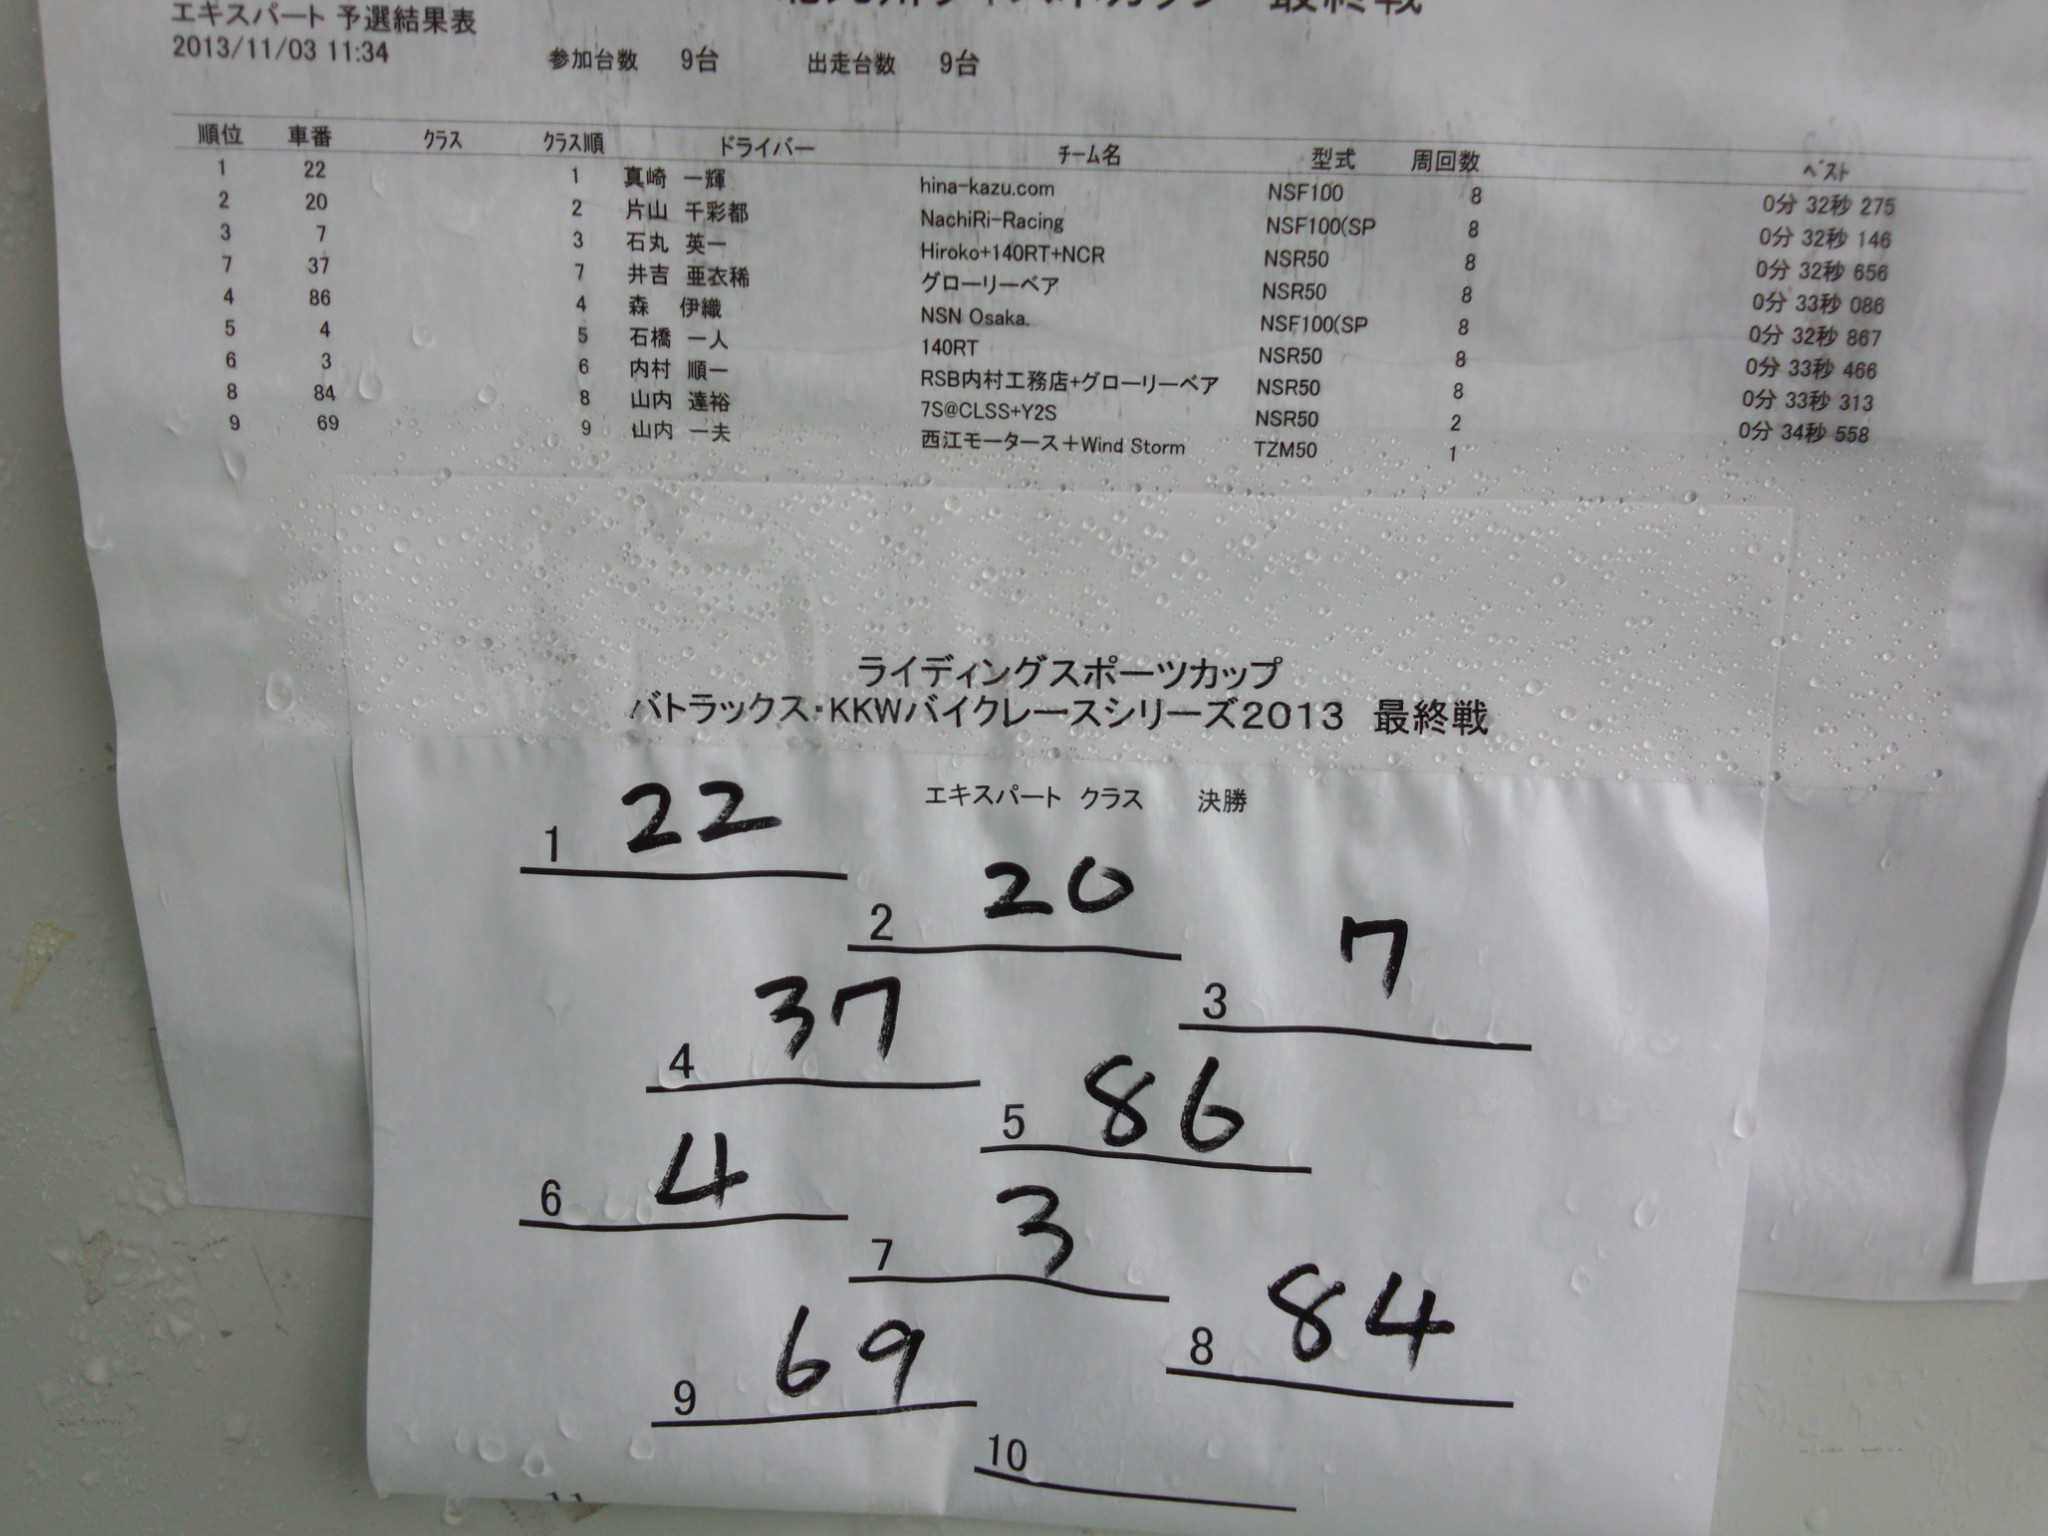 最終戦
エキスパート 予選結果表
2013/11/03 11:34 参加台数 9台 出走台数 9台
順位 車番 クラス クラス順 ドライバー チーム名 型式 周回数 ベスト
1 22 1 真崎 一輝 hina-kazu.com NSF100 8 0分 32秒 275
2 20 2 片山 千彩都 NachiRi-Racing NSF100(SP 8 0分 32秒 146
3 7 3 石丸 英一 Hiroko+140RT+NCR NSR50 8 0分 32秒 656
7 37 7 井吉 亜衣稀 グローリーベア NSR50 8 0分 33秒 086
4 86 4 森 伊織 NSN Osaka. NSF100(SP 8 0分 32秒 867
5 4 5 石橋 一人 140RT NSR50 8 0分 33秒 466
6 3 6 内村 順一 RSB内村工務店+グローリーベア NSR50 8 0分 33秒 313
8 84 8 山内 達裕 7S@CLSS+Y2S NSR50 2 0分 34秒 558
9 69 9 山内 一夫 西江モータース+Wind Storm TZM50 1
ライディングスポーツカップ
バトラックス・KKWバイクレースシリーズ2013 最終戦
エキスパート クラス 決勝
1 22
2 20
3 7
4 37
5 86
6 4
7 3
8 84
9 69
10